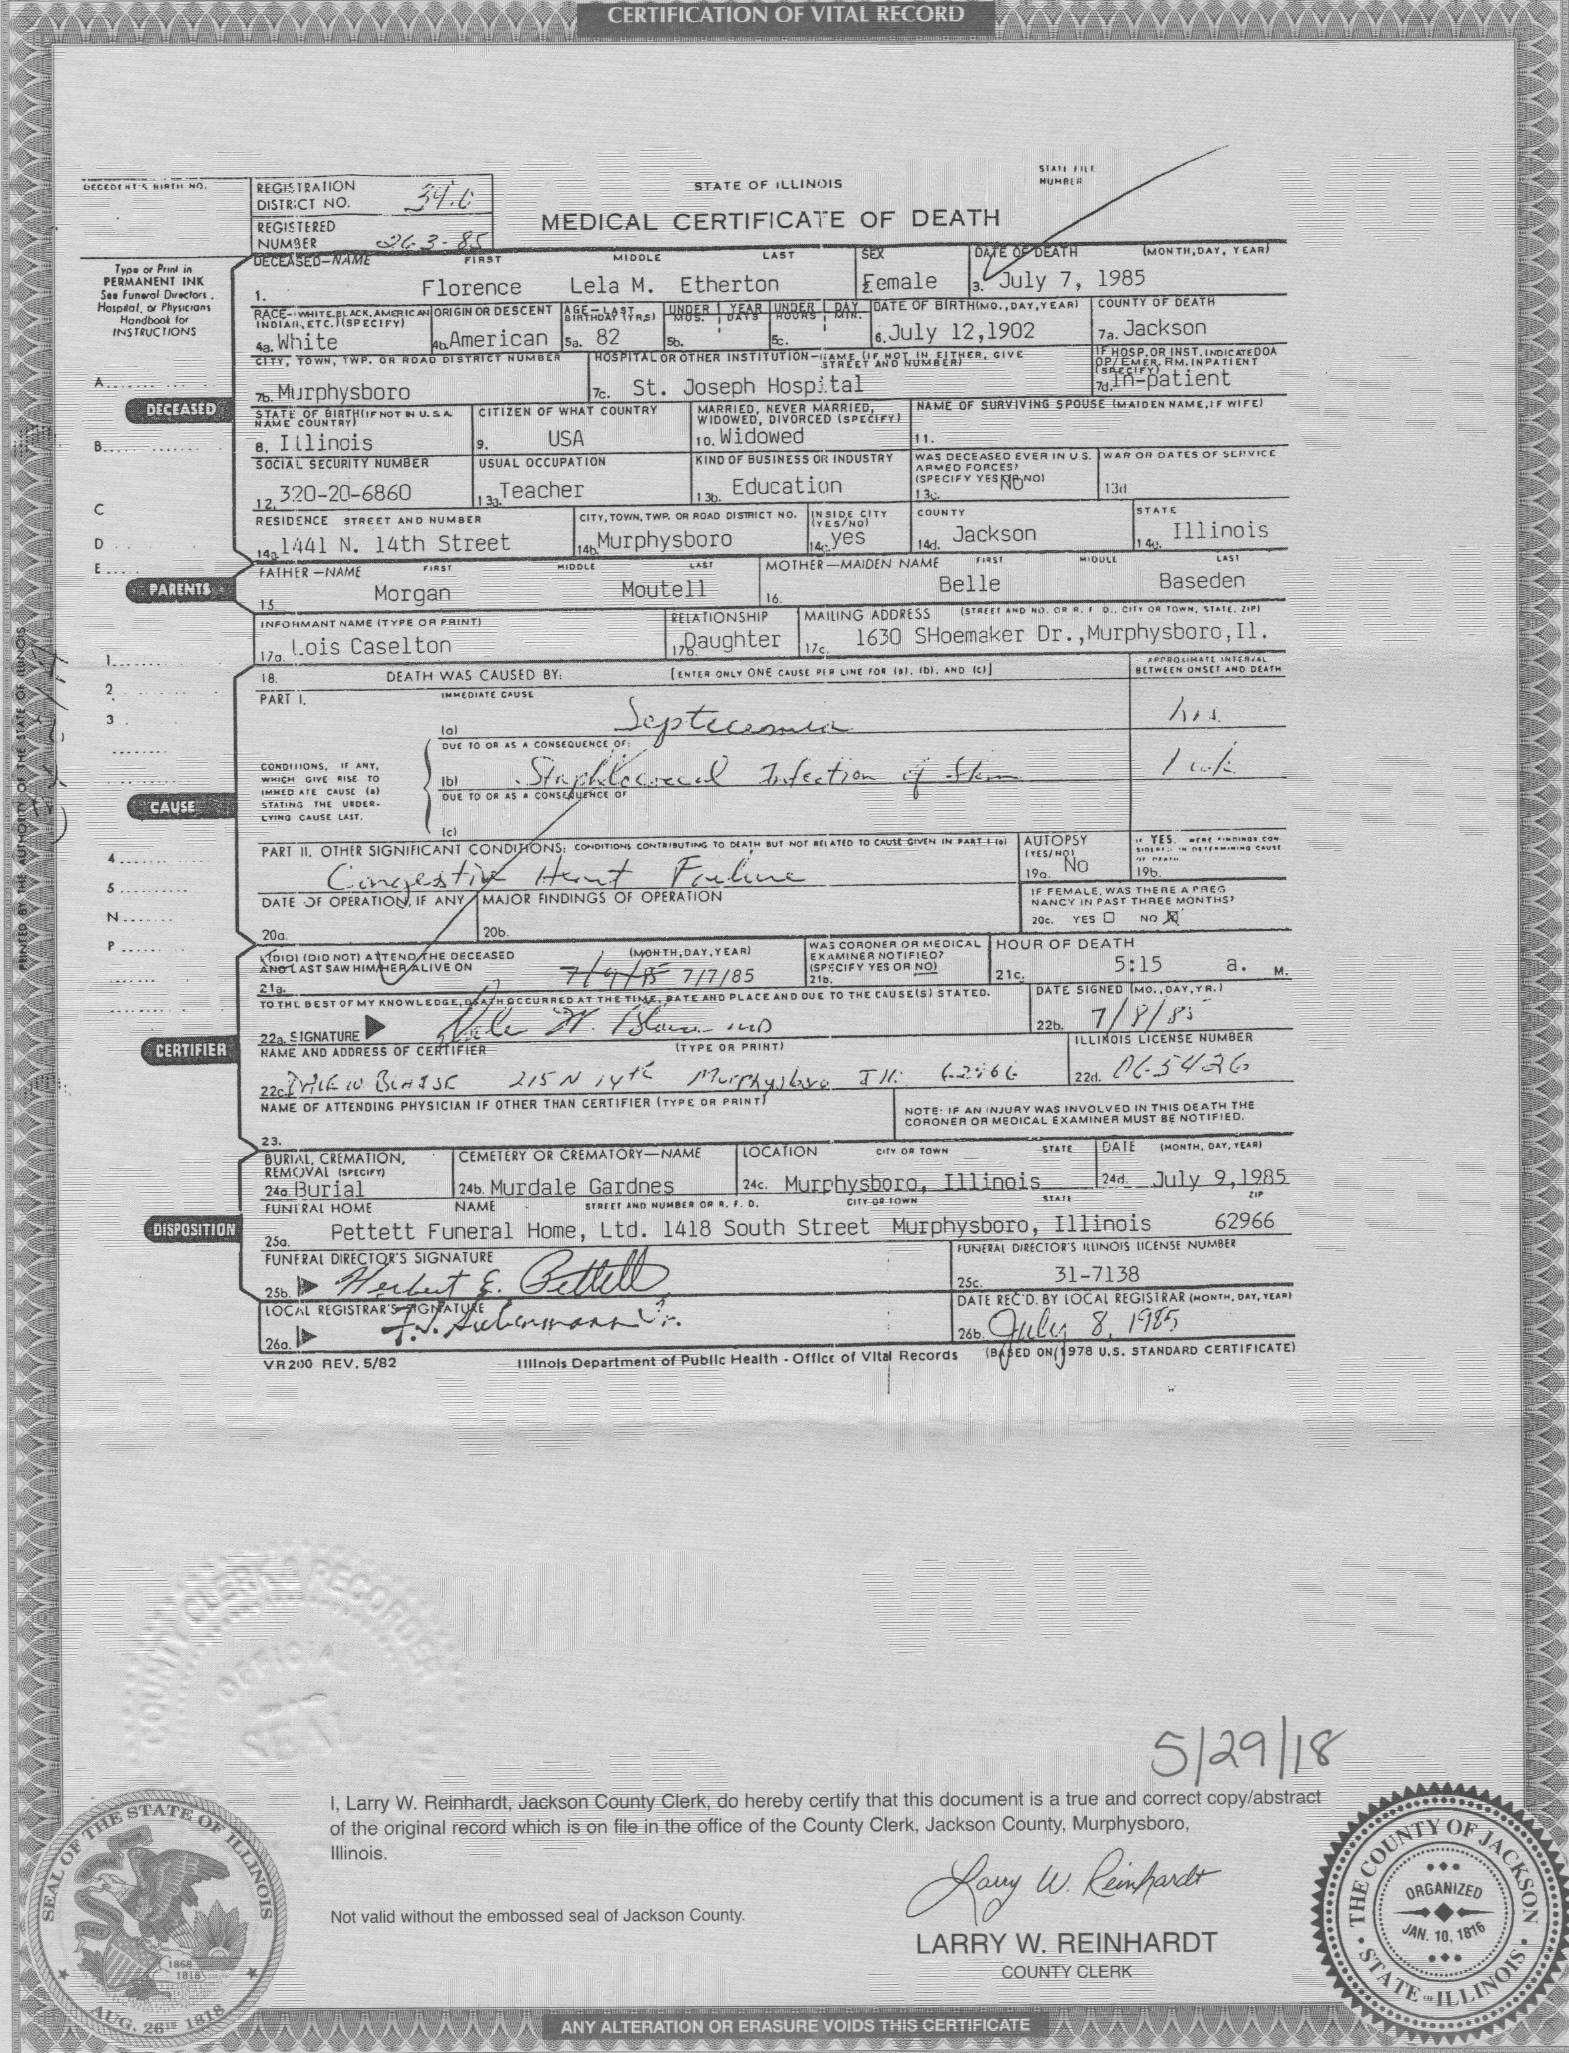 CERTIFICATION OF VITAL RECORD
DECEDENT'S BIRTH NO.
REGISTRATION DISTRICT NO. 39.0
REGISTERED NUMBER 263-85
STATE OF ILLINOIS
STATE FILE NUMBER
MEDICAL CERTIFICATE OF DEATH
Type or Print in
PERMANENT INK
See Funeral Directors,
Hospital, or Physicians
Handbook for
INSTRUCTIONS
DECEASED—NAME FIRST MIDDLE LAST SEX DATE OF DEATH (MONTH, DAY, YEAR)
1. Florence Lela M. Etherton Female 3. July 7, 1985
RACE—(WHITE, BLACK, AMERICAN INDIAN, ETC.) (SPECIFY) ORIGIN OR DESCENT AGE—LAST BIRTHDAY (YRS) UNDER 1 YEAR MOS. DAYS UNDER 1 DAY HOURS MIN. DATE OF BIRTH (MO., DAY, YEAR) COUNTY OF DEATH
4a. White 4b. American 5a. 82 5b. 5c. 6. July 12,1902 7a. Jackson
CITY, TOWN, TWP. OR ROAD DISTRICT NUMBER HOSPITAL OR OTHER INSTITUTION—NAME (IF NOT IN EITHER, GIVE STREET AND NUMBER) IF HOSP. OR INST. INDICATE DOA OP/EMER. RM. INPATIENT (SPECIFY)
7b. Murphysboro 7c. St. Joseph Hospital 7d. In-patient
A
DECEASED
STATE OF BIRTH (IF NOT IN U.S.A. NAME COUNTRY) CITIZEN OF WHAT COUNTRY MARRIED, NEVER MARRIED, WIDOWED, DIVORCED (SPECIFY) NAME OF SURVIVING SPOUSE (MAIDEN NAME, IF WIFE)
B
8. Illinois 9. USA 10. Widowed 11.
SOCIAL SECURITY NUMBER USUAL OCCUPATION KIND OF BUSINESS OR INDUSTRY WAS DECEASED EVER IN U.S. ARMED FORCES? (SPECIFY YES OR NO) WAR OR DATES OF SERVICE
12. 320-20-6860 13a. Teacher 13b. Education 13c. No 13d.
C
RESIDENCE STREET AND NUMBER CITY, TOWN, TWP. OR ROAD DISTRICT NO. INSIDE CITY (YES/NO) COUNTY STATE
D
14a. 1441 N. 14th Street 14b. Murphysboro 14c. yes 14d. Jackson 14e. Illinois
E
FATHER—NAME FIRST MIDDLE LAST MOTHER—MAIDEN NAME FIRST MIDDLE LAST
PARENTS
15. Morgan Moutell 16. Belle Baseden
INFORMANT NAME (TYPE OR PRINT) RELATIONSHIP MAILING ADDRESS (STREET AND NO. OR R. F. D., CITY OR TOWN, STATE, ZIP)
17a. Lois Caselton 17b. Daughter 17c. 1630 SHoemaker Dr.,Murphysboro,Il.
1
18. DEATH WAS CAUSED BY: [ENTER ONLY ONE CAUSE PER LINE FOR (a), (b), AND (c)] APPROXIMATE INTERVAL BETWEEN ONSET AND DEATH
2
PART I. IMMEDIATE CAUSE
3
(a) Septicemia hrs.
DUE TO OR AS A CONSEQUENCE OF:
CONDITIONS, IF ANY, WHICH GIVE RISE TO IMMEDIATE CAUSE (a) STATING THE UNDERLYING CAUSE LAST.
(b) Staphlococcal Infection of Skin 1 wk
DUE TO OR AS A CONSEQUENCE OF
CAUSE
(c)
4
PART II. OTHER SIGNIFICANT CONDITIONS: CONDITIONS CONTRIBUTING TO DEATH BUT NOT RELATED TO CAUSE GIVEN IN PART I (a) AUTOPSY (YES/NO) IF YES, WERE FINDINGS CONSIDERED IN DETERMINING CAUSE OF DEATH
Congestive Heart Failure 19a. No 19b.
5
DATE OF OPERATION, IF ANY MAJOR FINDINGS OF OPERATION IF FEMALE, WAS THERE A PREGNANCY IN PAST THREE MONTHS?
N
20a. 20b. 20c. YES NO X
P
(DID) (DID NOT) ATTEND THE DECEASED AND LAST SAW HIM/HER ALIVE ON (MONTH, DAY, YEAR) WAS CORONER OR MEDICAL EXAMINER NOTIFIED? (SPECIFY YES OR NO) HOUR OF DEATH
21a. 7/9/85 7/7/85 21b. 21c. 5:15 a. M.
TO THE BEST OF MY KNOWLEDGE, DEATH OCCURRED AT THE TIME, DATE AND PLACE AND DUE TO THE CAUSE(S) STATED. DATE SIGNED (MO., DAY, YR.)
22a. SIGNATURE 22b. 7/8/85
CERTIFIER
NAME AND ADDRESS OF CERTIFIER (TYPE OR PRINT) ILLINOIS LICENSE NUMBER
22c. DALE W BLAISE 215 N 14th Murphysboro Ill. 62966 22d. 065426
NAME OF ATTENDING PHYSICIAN IF OTHER THAN CERTIFIER (TYPE OR PRINT) NOTE: IF AN INJURY WAS INVOLVED IN THIS DEATH THE CORONER OR MEDICAL EXAMINER MUST BE NOTIFIED.
23.
BURIAL, CREMATION, REMOVAL (SPECIFY) CEMETERY OR CREMATORY—NAME LOCATION CITY OR TOWN STATE DATE (MONTH, DAY, YEAR)
24a. Burial 24b. Murdale Gardnes 24c. Murphysboro, Illinois 24d. July 9,1985
FUNERAL HOME NAME STREET AND NUMBER OR R. F. D. CITY OR TOWN STATE ZIP
DISPOSITION
25a. Pettett Funeral Home, Ltd. 1418 South Street Murphysboro, Illinois 62966
FUNERAL DIRECTOR'S SIGNATURE FUNERAL DIRECTOR'S ILLINOIS LICENSE NUMBER
25b. Herbert E. Pettett 25c. 31-7138
LOCAL REGISTRAR'S SIGNATURE DATE REC'D. BY LOCAL REGISTRAR (MONTH, DAY, YEAR)
26a. 26b. July 8, 1985
VR200 REV. 5/82 Illinois Department of Public Health - Office of Vital Records (BASED ON 1978 U.S. STANDARD CERTIFICATE)
PRINTED BY THE AUTHORITY OF THE STATE OF ILLINOIS
VOID
COUNTY CLERK & RECORDER
OFFICIAL
SEAL
5/29/18
I, Larry W. Reinhardt, Jackson County Clerk, do hereby certify that this document is a true and correct copy/abstract
of the original record which is on file in the office of the County Clerk, Jackson County, Murphysboro,
Illinois.
Larry W. Reinhardt
Not valid without the embossed seal of Jackson County.
LARRY W. REINHARDT
COUNTY CLERK
SEAL OF THE STATE OF ILLINOIS
1868
1818
AUG. 26TH 1818
THE COUNTY OF JACKSON
ORGANIZED
JAN. 10, 1816
STATE OF ILLINOIS
ANY ALTERATION OR ERASURE VOIDS THIS CERTIFICATE